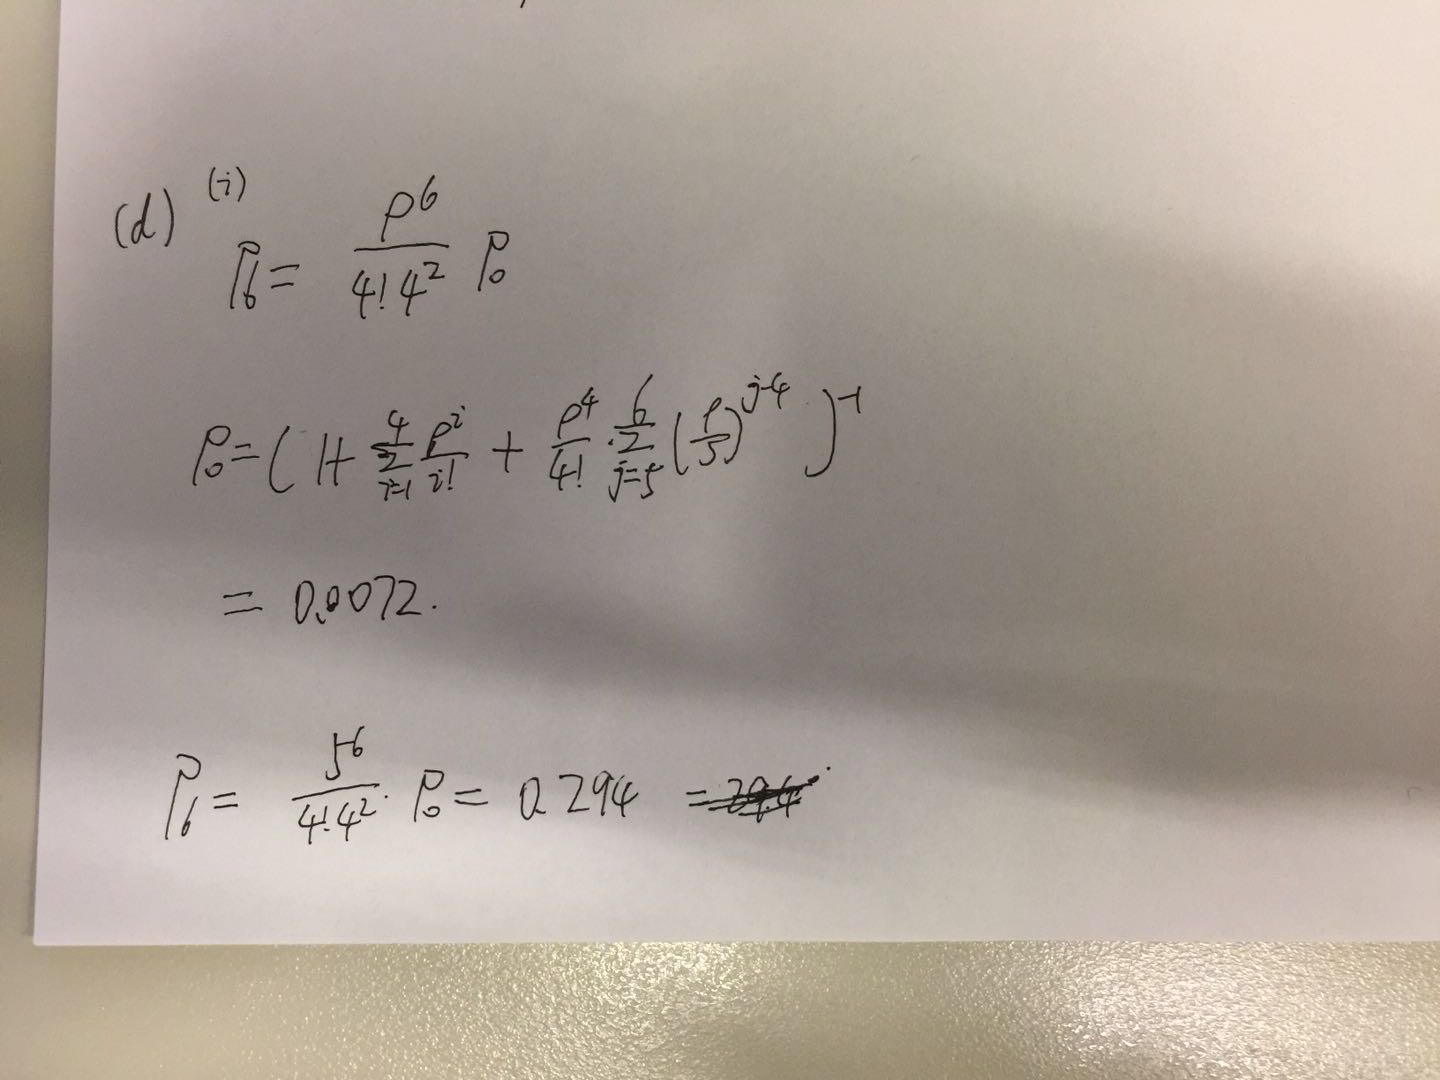 (d) (i)
P₆ = ρ⁶ / (4! 4²) P₀
P₀ = ( 1 + Σ_{i=1}^{4} ρ^i / i! + ρ⁴ / 4! · Σ_{j=5}^{6} (ρ/5)^{j-4} )⁻¹
= 0.0072.
P₆ = 5⁶ / (4! 4²) · P₀ = 0.294